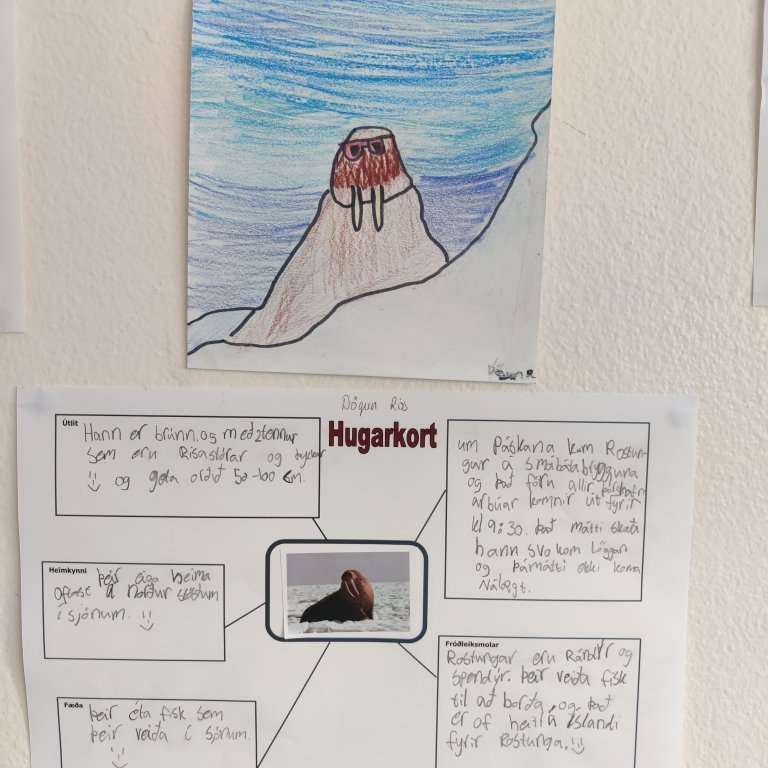 Dögun Rós
Hugarkort
Útlit
Hann er brúnn. og með 2 tennur
sem eru Risastórar og
og geta orðið 50-100 cm.
um Páskana kom Rostun-
gur á smábátabryggjuna
og það fóru allir þórshafn
arbúar komnir út fyrir
kl 9:30. það mátti skoða
hann svo kom löggan
og þá mátti ekki koma
Nálægt.
Heimkynni
þeir eiga heima
oftast á norður slóðum
í sjónum.
Fróðleiksmolar
Rostungar eru Rándýr og
spendýr. þeir veiða fisk
til að borða, og það
er of heitt á íslandi
fyrir Rostunga.
Fæða
þeir éta fisk sem
þeir veiða í sjónum.